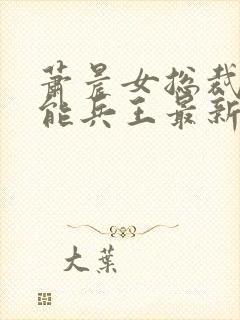 萧晨女总裁
能兵王最新
大葉